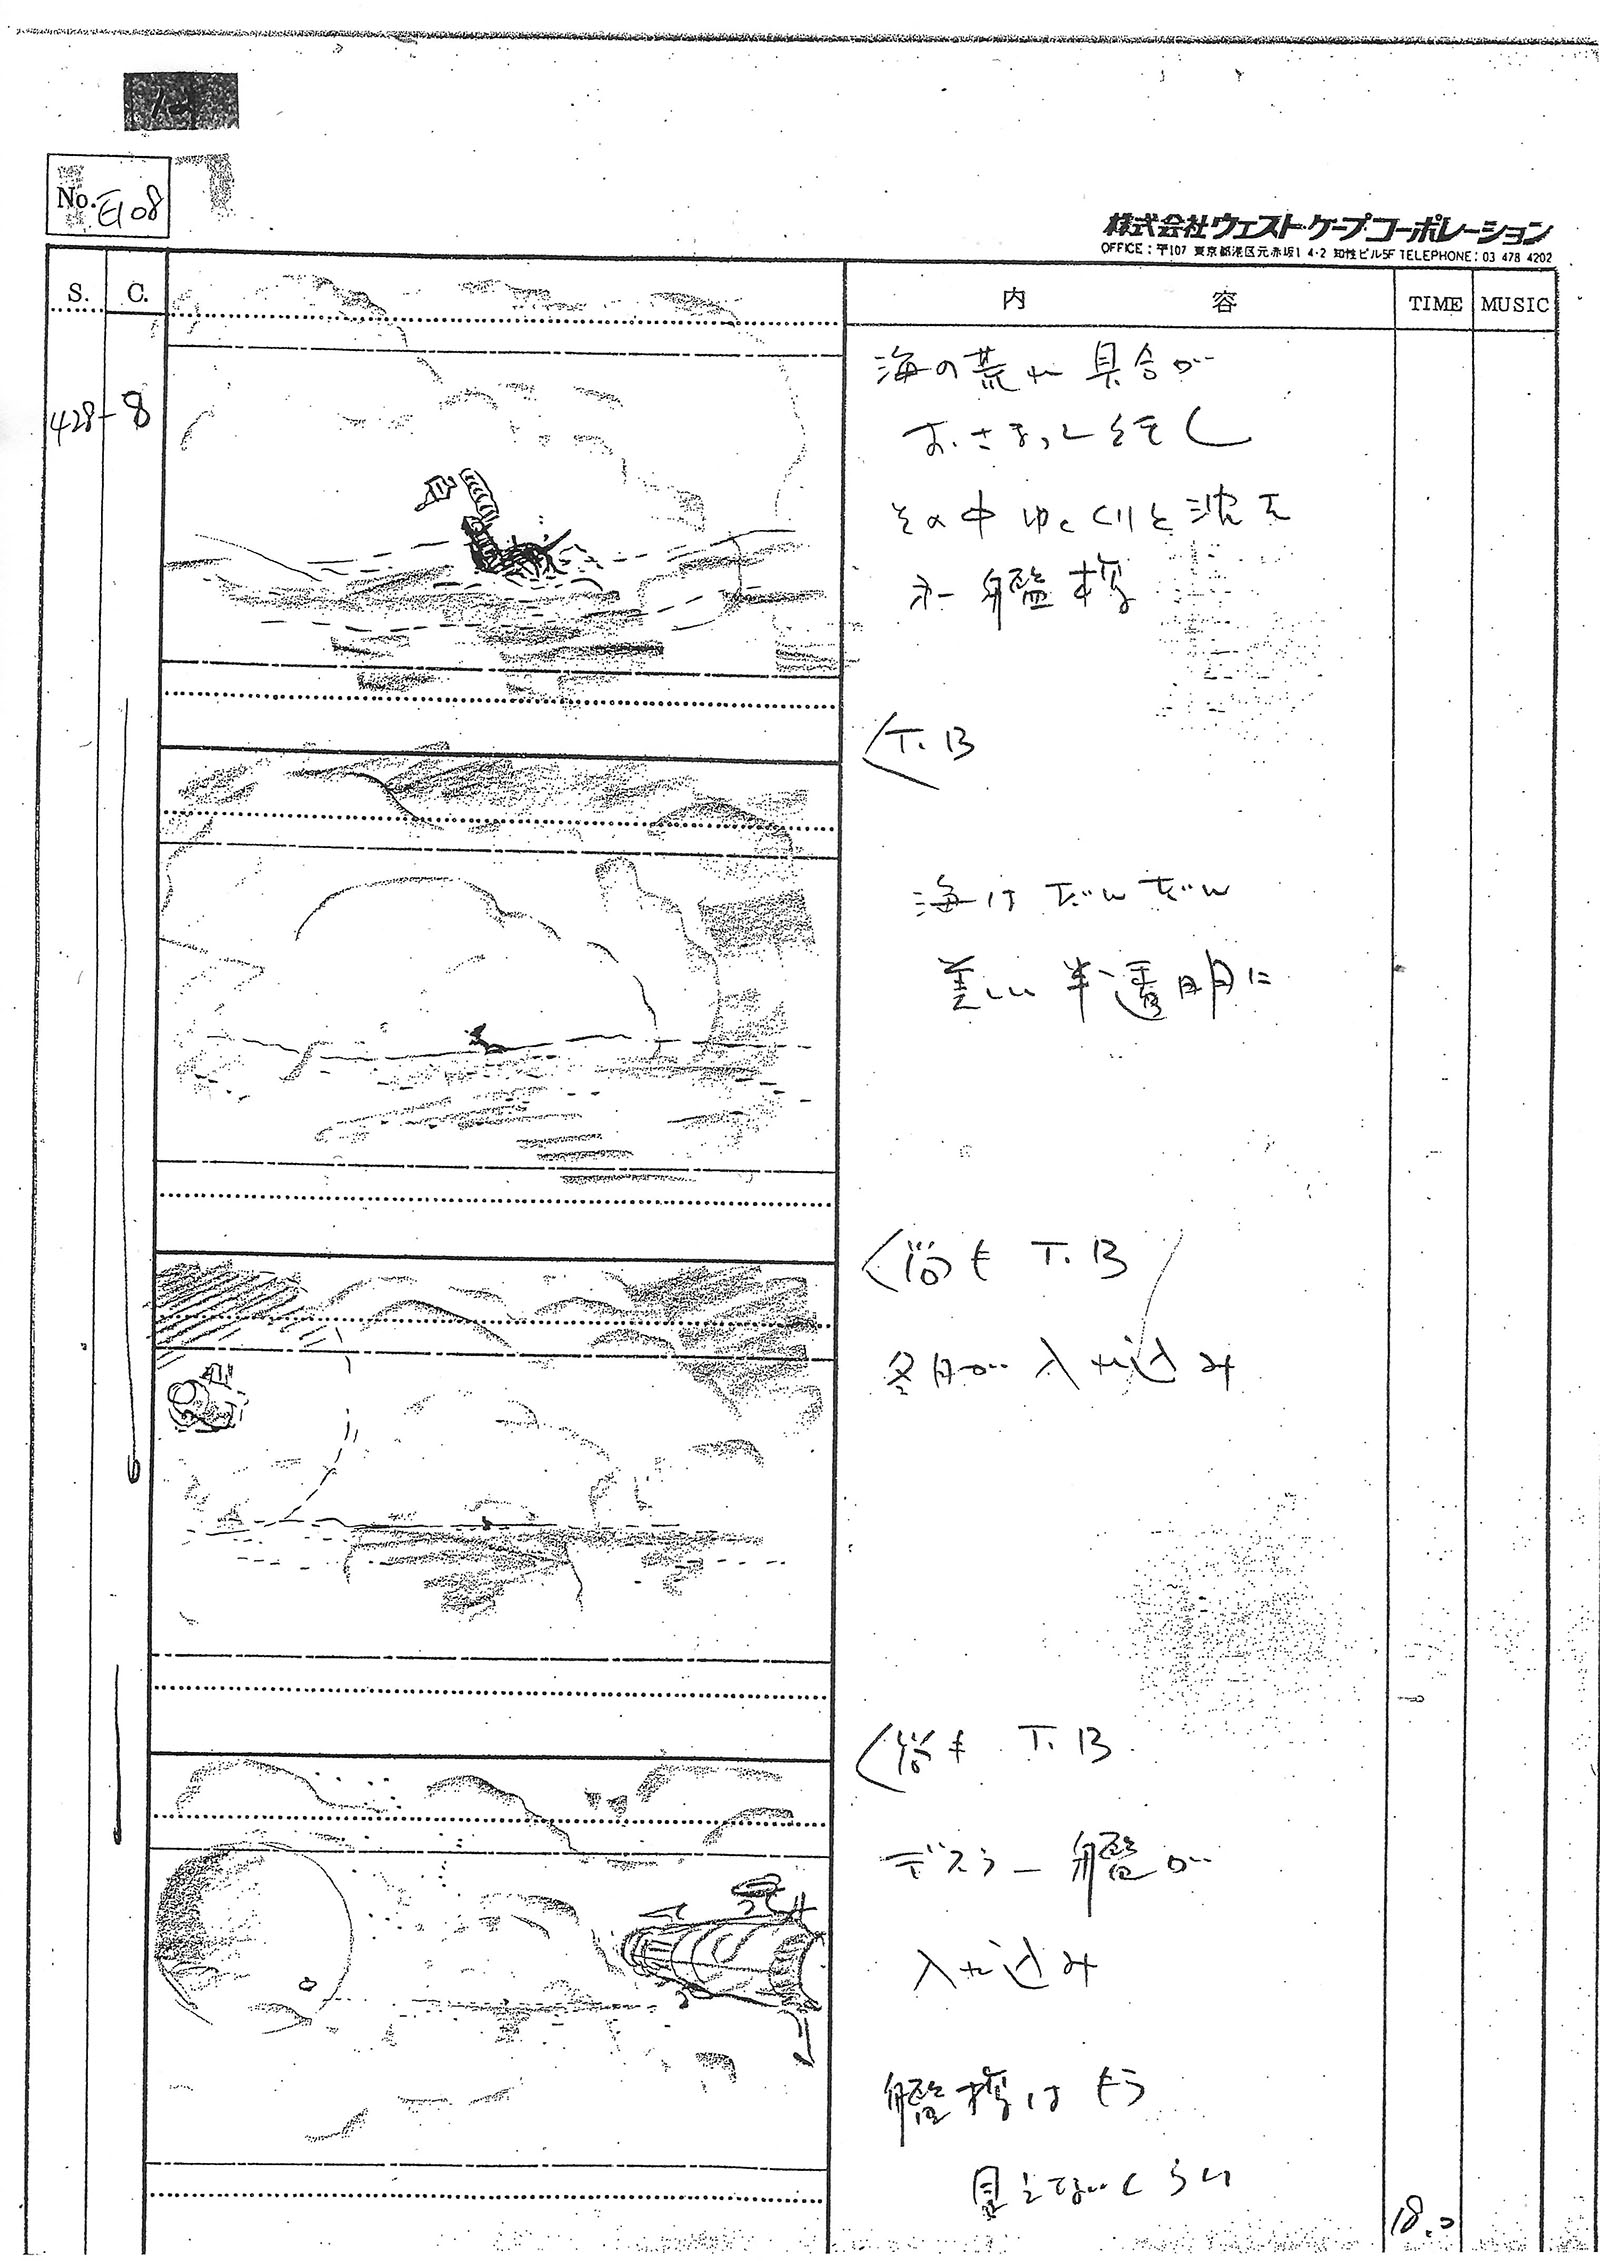 No. E108
株式会社ウェスト・ケープ・コーポレーション
OFFICE：〒107 東京都港区元赤坂1 4-2 知性ビル5F TELEPHONE：03 478 4202
S. C. 内 容 TIME MUSIC
428-8
海の荒れ具合が
おさまって
その中ゆっくりと沈む
艦橋
T.B
海はだんだん
美しい半透明に
尚も T.B
冬月が入れ込み
尚も T.B
デスラー艦が
入れ込み
艦橋はもう
見えないくらい
18.0